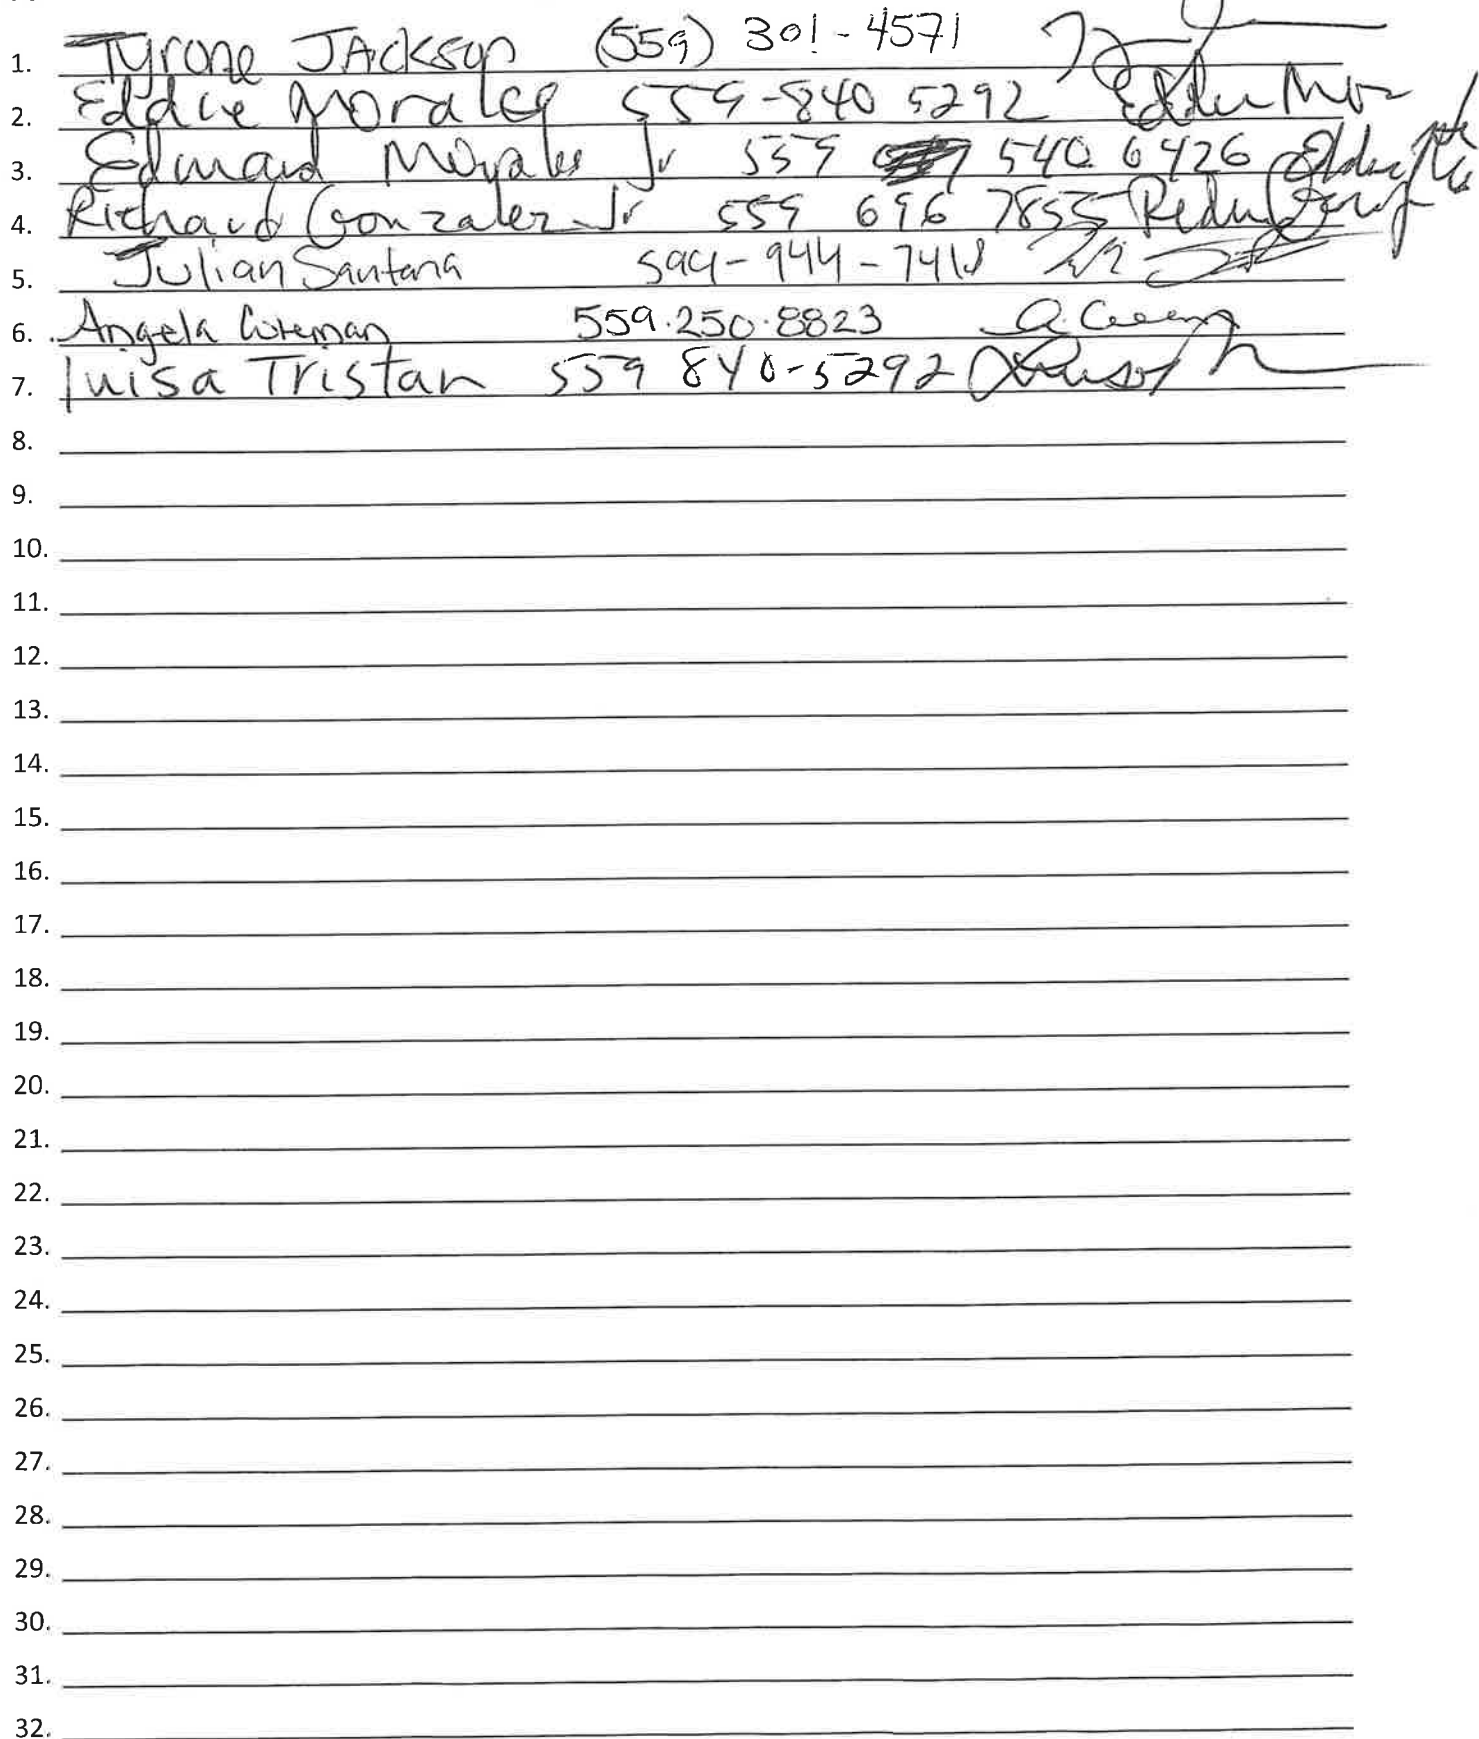 1. Tyrone JAckson (559) 301-4571
2. Eddie Morales 559-840 5292
3. Edward Morales Jr 559 540 6426
4. Richard Gonzalez Jr 559 696 7855
5. Julian Santana
6. Angela 559.250.8823
7. luisa Tristan 559 840-5292
8.
9.
10.
11.
12.
13.
14.
15.
16.
17.
18.
19.
20.
21.
22.
23.
24.
25.
26.
27.
28.
29.
30.
31.
32.